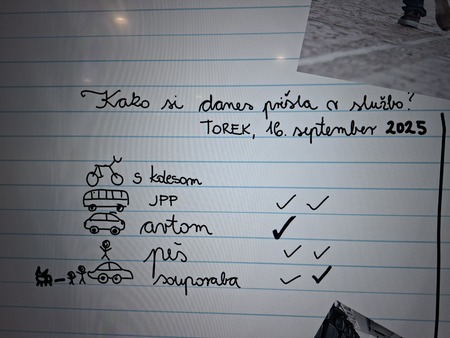 Kako si danes prišla v službo?
TOREK, 16. september 2025
s kolesom
JPP ✓ ✓
avtom ✓
peš ✓ ✓
souporaba ✓ ✓